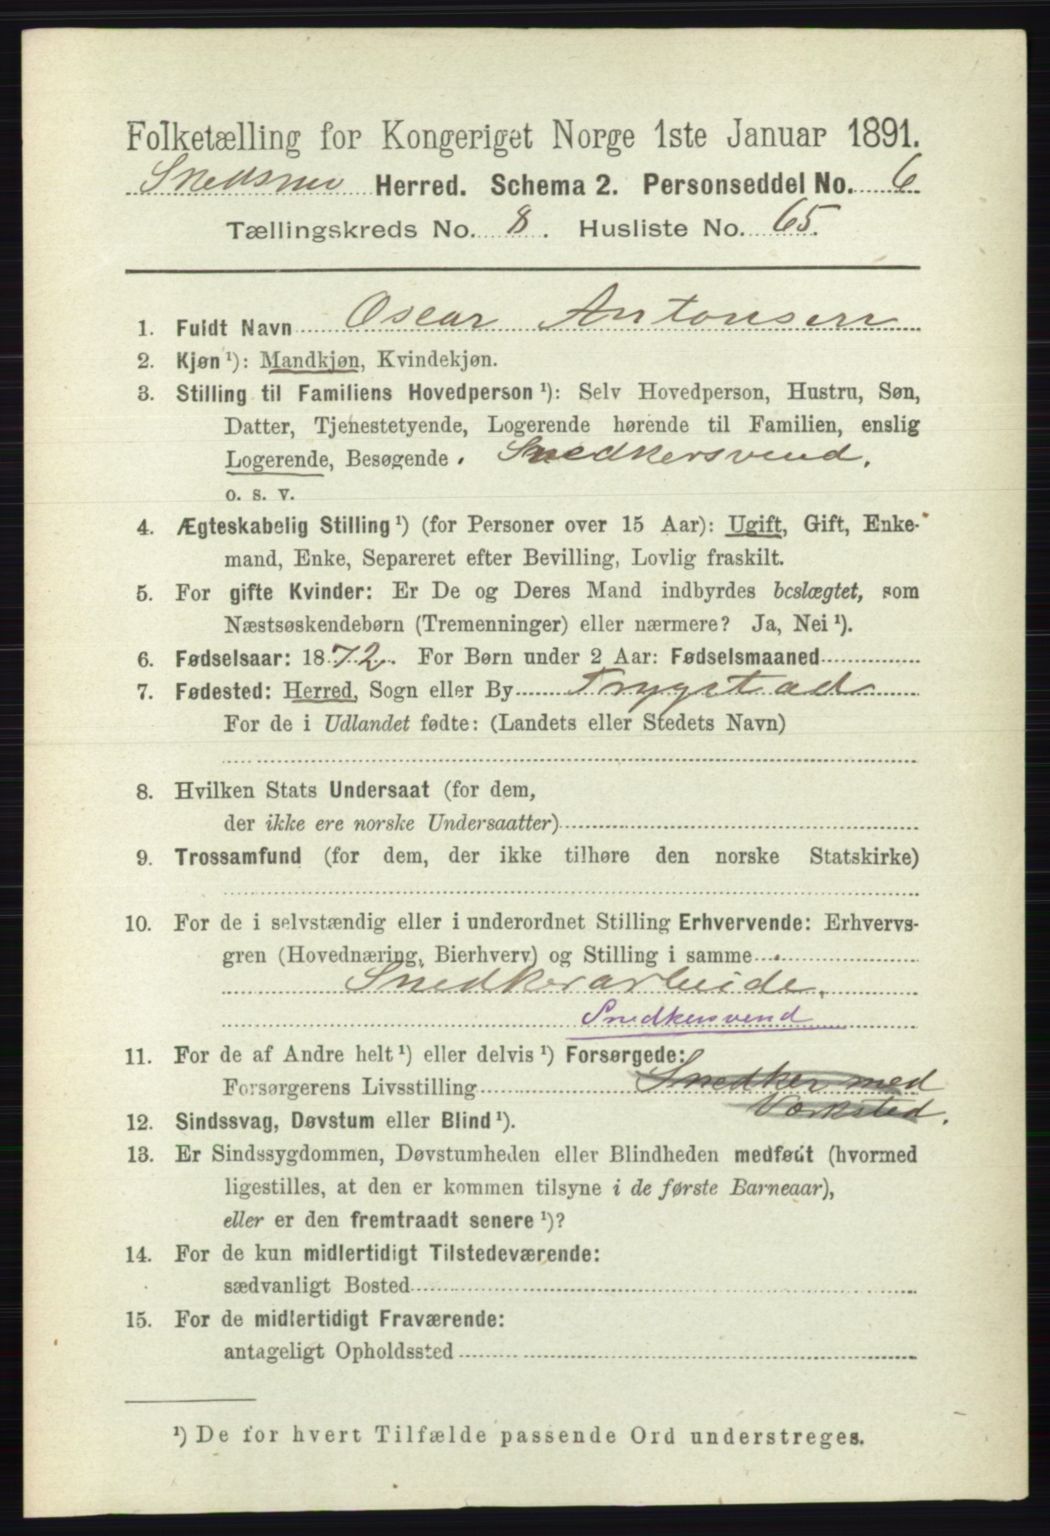 Folketælling for Kongeriget Norge 1ste Januar 1891.
Herred. Schema 2. Personseddel No. 6
Tællingskreds No. 8. Husliste No. 65.
1. Fuldt Navn Oscar Antonsen
2. Kjøn ¹): Mandkjøn, Kvindekjøn.
3. Stilling til Familiens Hovedperson ¹): Selv Hovedperson, Hustru, Søn,
Datter, Tjenestetyende, Logerende hørende til Familien, enslig
Logerende, Besøgende. Snedkersvend.
o. s. v.
4. Ægteskabelig Stilling ¹) (for Personer over 15 Aar): Ugift, Gift, Enke-
mand, Enke, Separeret efter Bevilling, Lovlig fraskilt.
5. For gifte Kvinder: Er De og Deres Mand indbyrdes beslægtet, som
Næstsøskendebørn (Tremenninger) eller nærmere? Ja, Nei ¹).
6. Fødselsaar: 1872. For Børn under 2 Aar: Fødselsmaaned
7. Fødested: Herred, Sogn eller By Trygstad
For de i Udlandet fødte: (Landets eller Stedets Navn)
8. Hvilken Stats Undersaat (for dem,
der ikke ere norske Undersaatter)
9. Trossamfund (for dem, der ikke tilhøre den norske Statskirke)
10. For de i selvstændig eller i underordnet Stilling Erhvervende: Erhvervs-
gren (Hovednæring, Bierhverv) og Stilling i samme
Snedkerarbeide.
Snedkersvend
11. For de af Andre helt ¹) eller delvis ¹) Forsørgede:
Forsørgerens Livsstilling Snedker med
Værksted.
12. Sindssvag, Døvstum eller Blind ¹).
13. Er Sindssygdommen, Døvstumheden eller Blindheden medfødt (hvormed
ligestilles, at den er kommen tilsyne i de første Barneaar),
eller er den fremtraadt senere ¹)?
14. For de kun midlertidigt Tilstedeværende:
sædvanligt Bosted
15. For de midlertidigt Fraværende:
antageligt Opholdssted
¹) De for hvert Tilfælde passende Ord understreges.